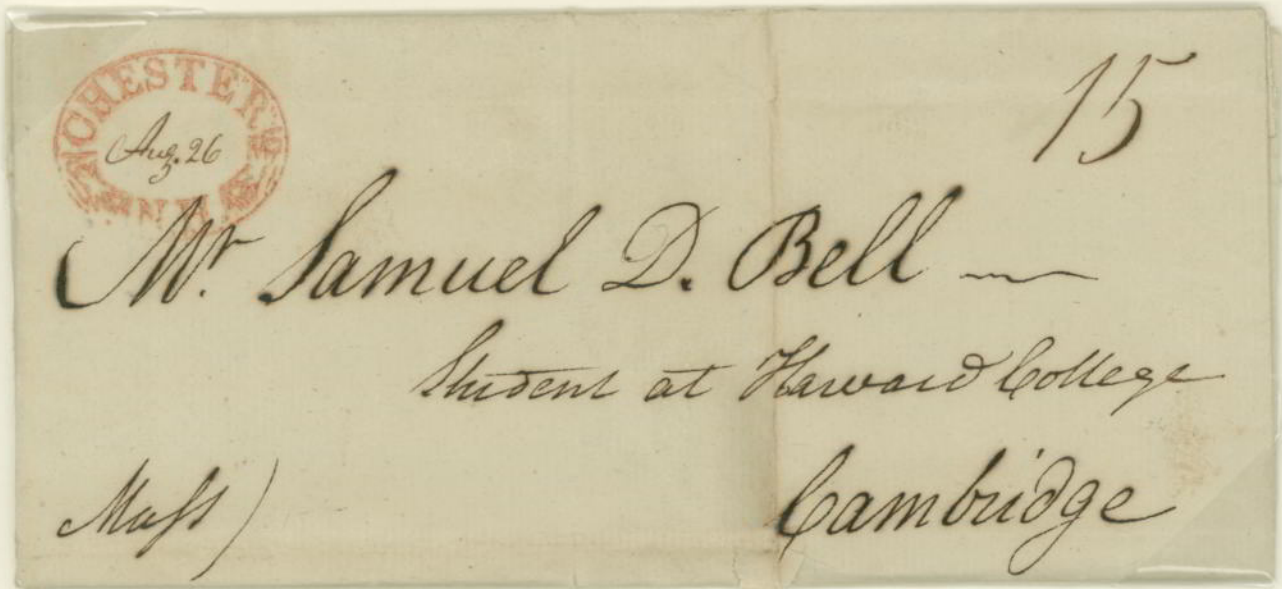 CHESTER
Aug. 26
N.H.
15
Mr. Samuel D. Bell
Student at Harvard College
Cambridge
Mass)